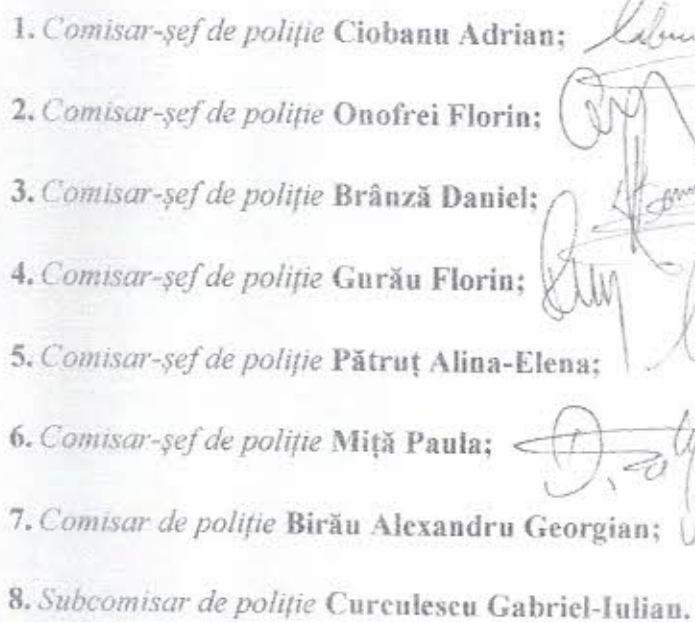 1. Comisar-șef de poliție Ciobanu Adrian;
2. Comisar-șef de poliție Onofrei Florin;
3. Comisar-șef de poliție Brânză Daniel;
4. Comisar-șef de poliție Gurău Florin;
5. Comisar-șef de poliție Pătruț Alina-Elena;
6. Comisar-șef de poliție Miță Paula;
7. Comisar de poliție Birău Alexandru Georgian;
8. Subcomisar de poliție Curculescu Gabriel-Iulian.